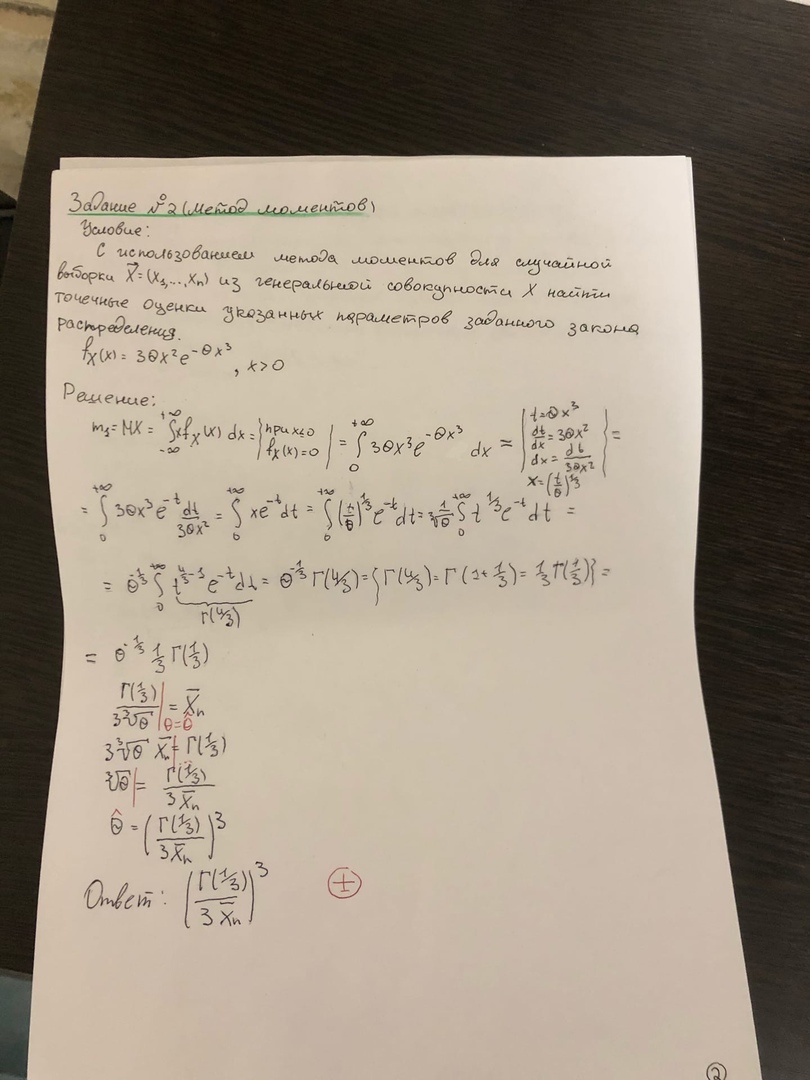 Задание №2 (Метод моментов)
Условие:
С использованием метода моментов для случайной
выборки X⃗=(x₁,...,xₙ) из генеральной совокупности X найти
точечные оценки указанных параметров заданного закона
распределения.
f_X(x) = 3θx²e^{-θx³}, x>0
Решение:
m₁ = MX = ∫_{-∞}^{+∞} x f_X(x) dx = {при x≤0 f_X(x)=0| = ∫_0^{+∞} 3θx³e^{-θx³} dx = |t=θx³ dt/dx = 3θx² dx = dt/3θx² x=(t/θ)^{1/3}} =
= ∫_0^{+∞} 3θx³e^{-t} dt/3θx² = ∫_0^{+∞} xe^{-t}dt = ∫_0^{+∞} (t/θ)^{1/3} e^{-t}dt = 1/∛θ ∫_0^{+∞} t^{1/3} e^{-t} dt =
= θ^{-1/3} ∫_0^{+∞} t^{4/3-1} e^{-t}dt = θ^{-1/3} Γ(4/3) = {Γ(4/3) = Γ(1+1/3) = 1/3 Γ(1/3)} =
Γ(4/3)
= θ^{-1/3} 1/3 Γ(1/3)
Γ(1/3)/3∛θ |_{θ=θ̂} = X̄ₙ
3∛θ X̄ₙ| = Γ(1/3)
∛θ| = Γ(1/3)/3X̄ₙ
θ̂ = (Γ(1/3)/3X̄ₙ)³
Ответ: (Γ(1/3)/3x̄ₙ)³ ±
2